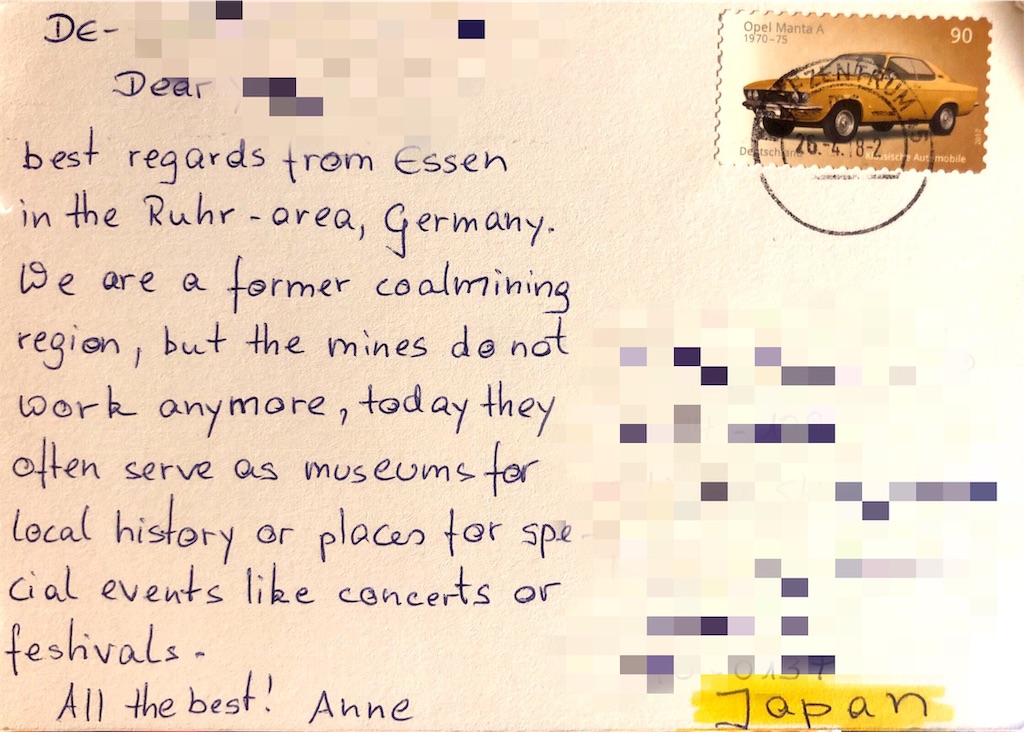 DE-
Dear
best regards from Essen
in the Ruhr-area, Germany.
We are a former coalmining
region, but the mines do not
work anymore, today they
often serve as museums for
local history or places for spe-
cial events like concerts or
festivals.
All the best! Anne
Opel Manta A
1970-75
90
Deutschland
Klassische Automobile
2017
EZENTRUM
26.-4.18-2
Japan